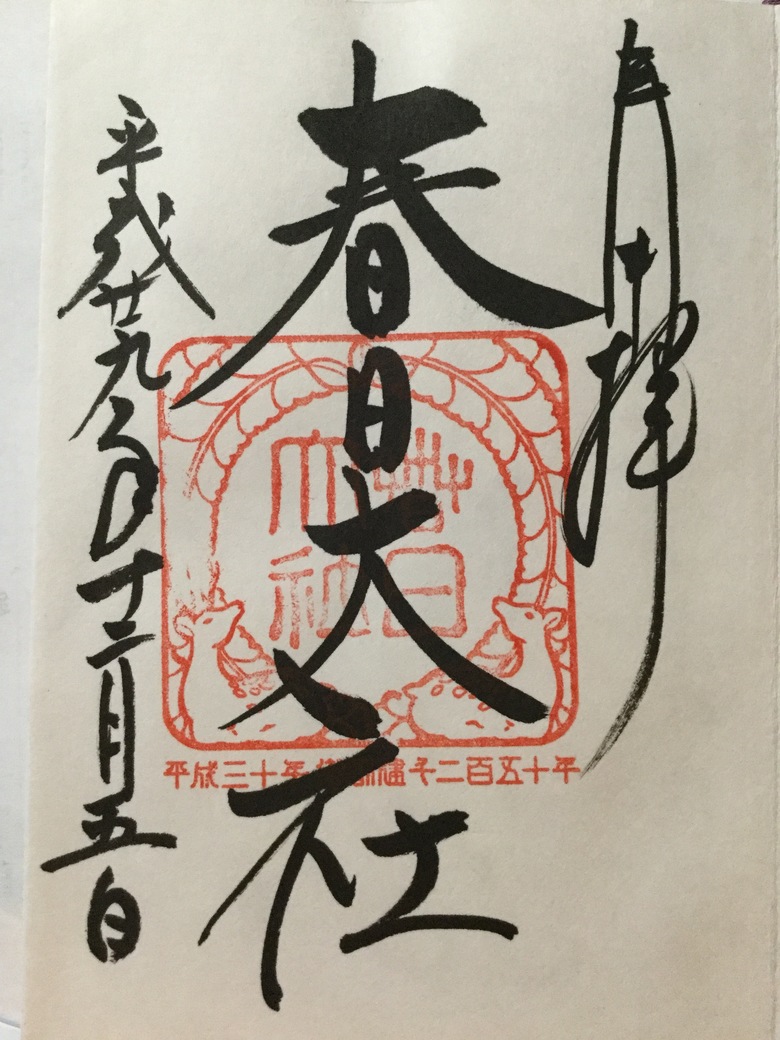 奉拝
春日大社
春日大社
平成三十年御創建千二百五十年
平成廿九年十二月五日